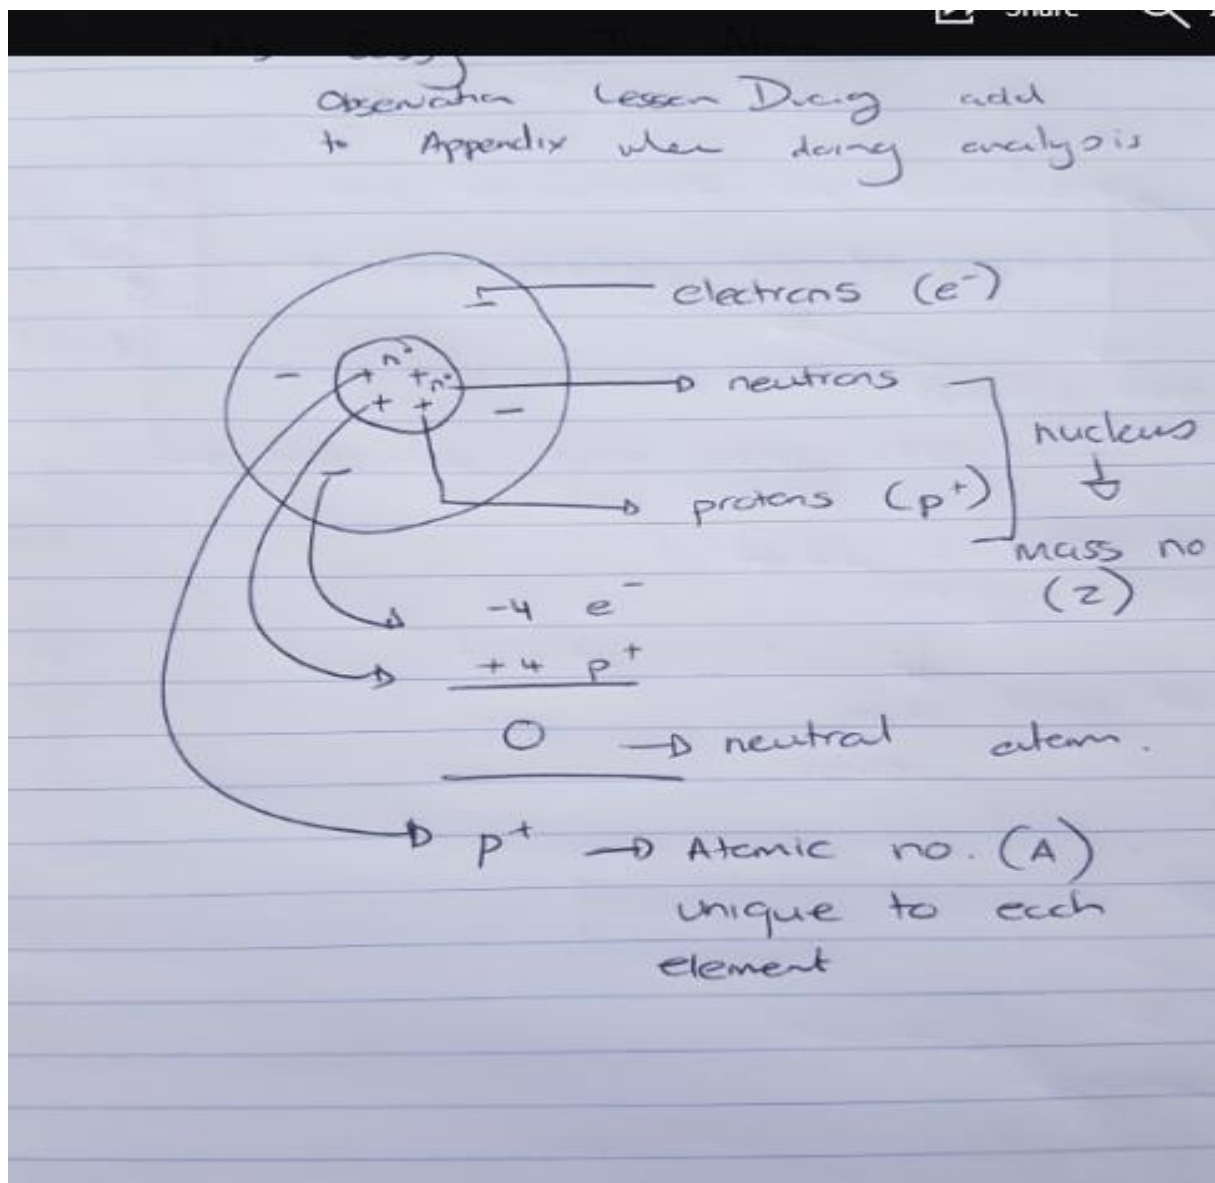 Share
Observation Lesson Diag add
to Appendix when doing analysis
electrons (e⁻)
n° +
+ n°
+ +
-
-
-
-
neutrons
nucleus
protons (p⁺)
mass no
(Z)
-4 e⁻
+4 p⁺
0 → neutral atom.
p⁺ → Atomic no. (A)
unique to each
element